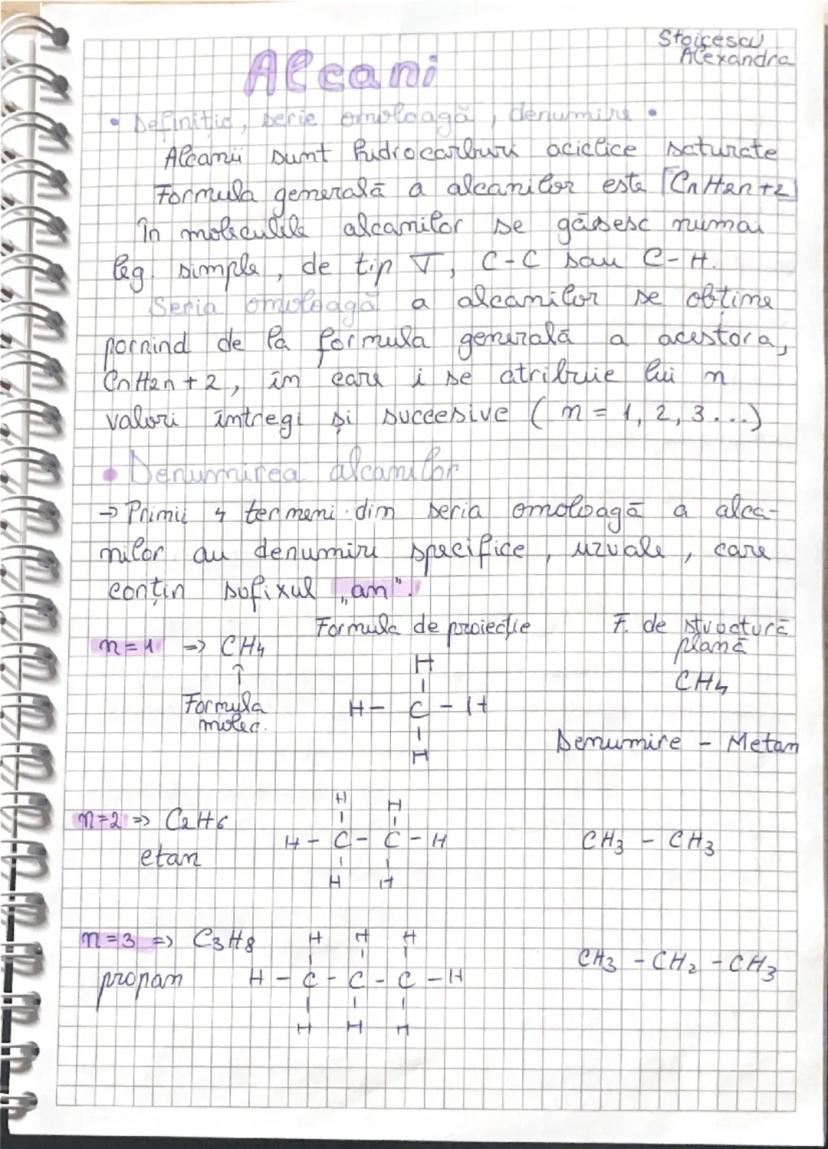 Stoicescu
Alexandra
Alcani
• Definiție, serie omoloagă, denumire •
Alcanii sunt hidrocarburi aciclice saturate
Formula generală a alcanilor este CnH2n+2
În moleculele alcanilor se găsesc numai
leg. simple, de tip σ, C-C sau C-H.
Seria omoloagă a alcanilor se obține
pornind de la formula generală a acestora,
CnH2n+2, în care i se atribuie lui n
valori întregi și succesive (n = 1, 2, 3...)
• Denumirea alcanilor
→ Primii 4 termeni din seria omoloagă a alca-
nilor au denumiri specifice, uzuale, care
conțin sufixul „an".
Formula de proiecție F. de structură
plană
n=1 => CH4
↑
Formula
molec.
H
H - C - H
H
CH4
Denumire - Metan
n=2 => C2H6
etan
H H
H - C - C - H
H H
CH3 - CH3
n=3 => C3H8
propan
H H H
H - C - C - C - H
H H H
CH3 - CH2 - CH3